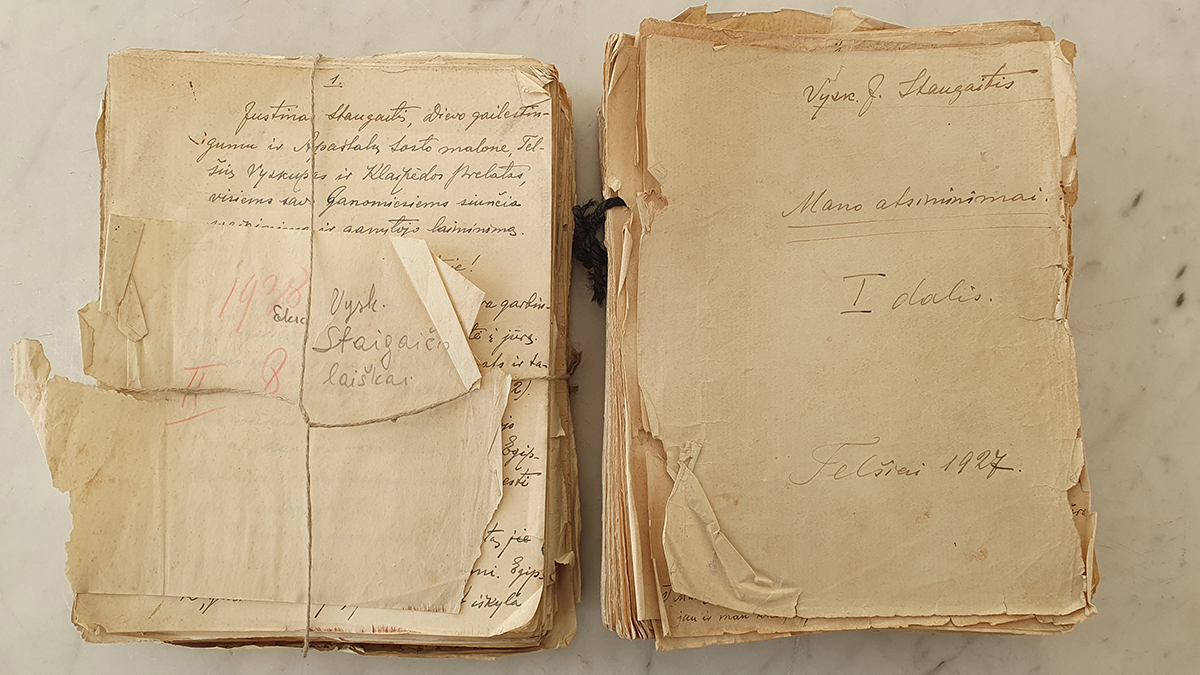 1.
Justinas Staugaitis, Dievo gailestin-
gumu ir Apaštalų Sosto malone, Tel-
šių Vyskupas ir Klaipėdos Prelatas,
visiems savo Ganomiesiems siunčia
ir ganytojo laiminimą.
ra garbin-
tė į jūrą.
ats ir ta-
2).
Egip-
esti
tas jie
mi. Egip-
iškyla
1938
Vysk.
Staigaičio
laiškai
II 8
Vysk. J. Staugaitis
Mano atsiminimai.
I dalis.
Telšiai 1927.
jau ir man